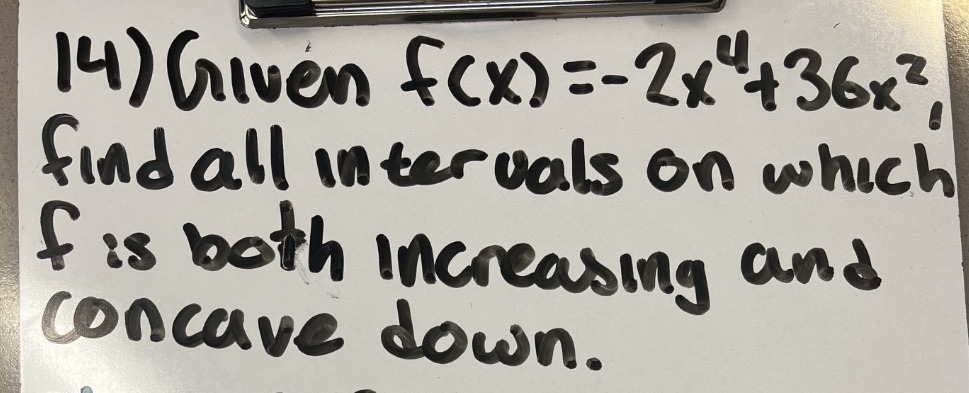 14) Given f(x)=-2x⁴+36x²,
find all intervals on which
f is both increasing and
concave down.